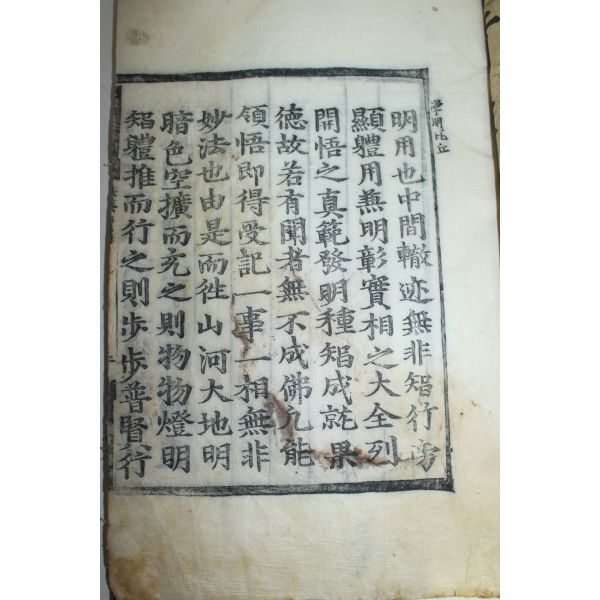 學明比丘
明用也中間轍迹無非智行旁
顯體用兼明彰實相之大全列
開悟之真範發明種智成就果
德故若有聞者無不成佛凡能
領悟即得受記一事一相無非
妙法也由是而徃山河大地明
暗色空擴而充之則物物燈明
智體推而行之則步步普賢行